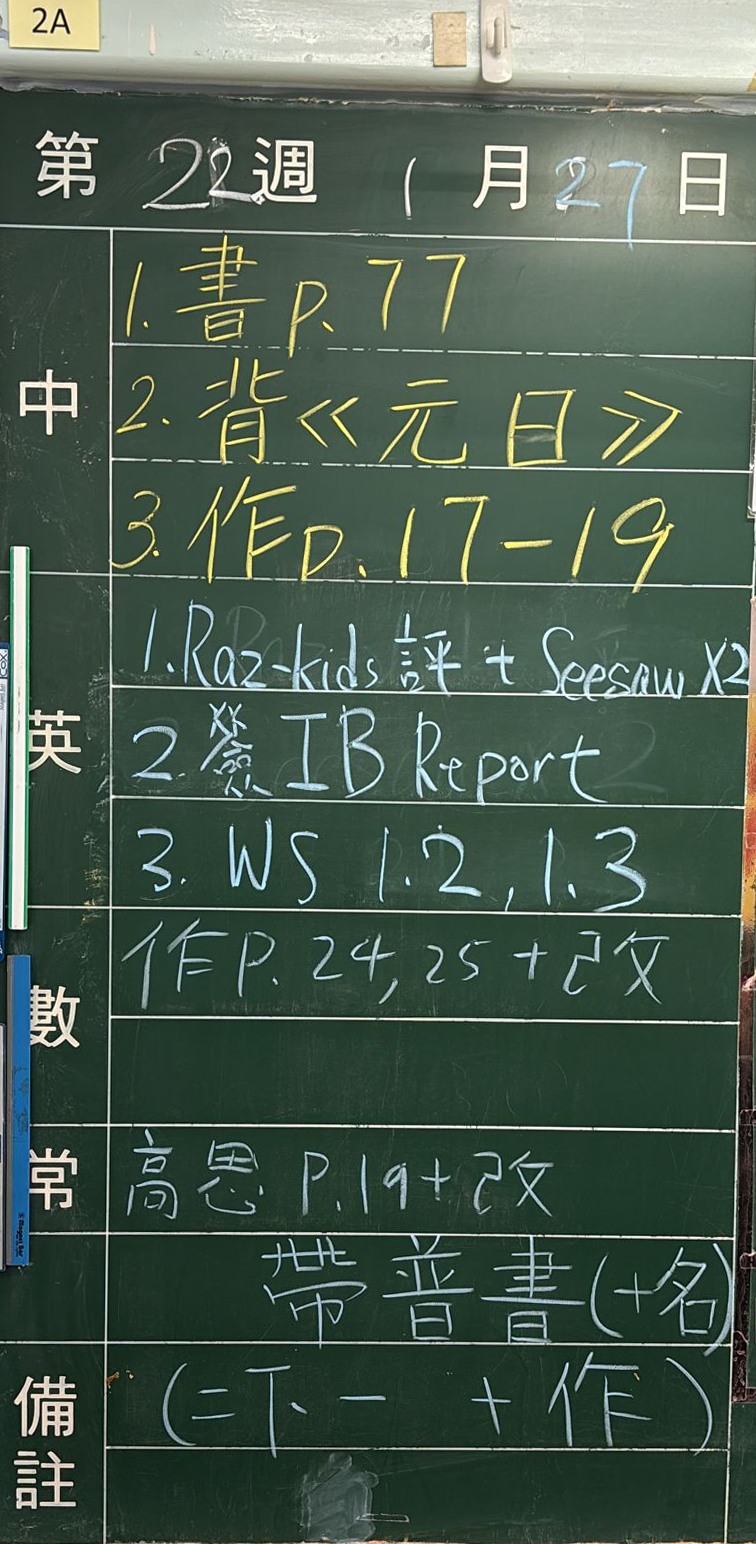 2A
第 22 週 1 月 27 日
中
1. 書 p. 77
2. 背《元日》
3. 作 p. 17-19
英
1. Raz-kids 評 + Seesaw X2
2. 簽 IB Report
3. WS 1.2, 1.3
數
作 P. 24, 25 + 改
常
高思 P.19 + 改
帶普書(+名)
備註
(二下一 + 作)